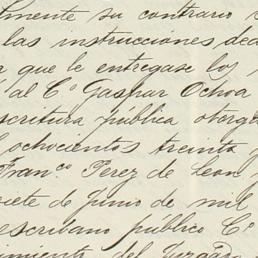 lmente su contrario
las instrucciones
que le entregase los
al C.º Gaspar Ochoa
scritura pública otorg
ochocientos treinta y
Fran.co Perez de Leon
iete de Junio de mil
escribano público C.º
imiento del Juzgado